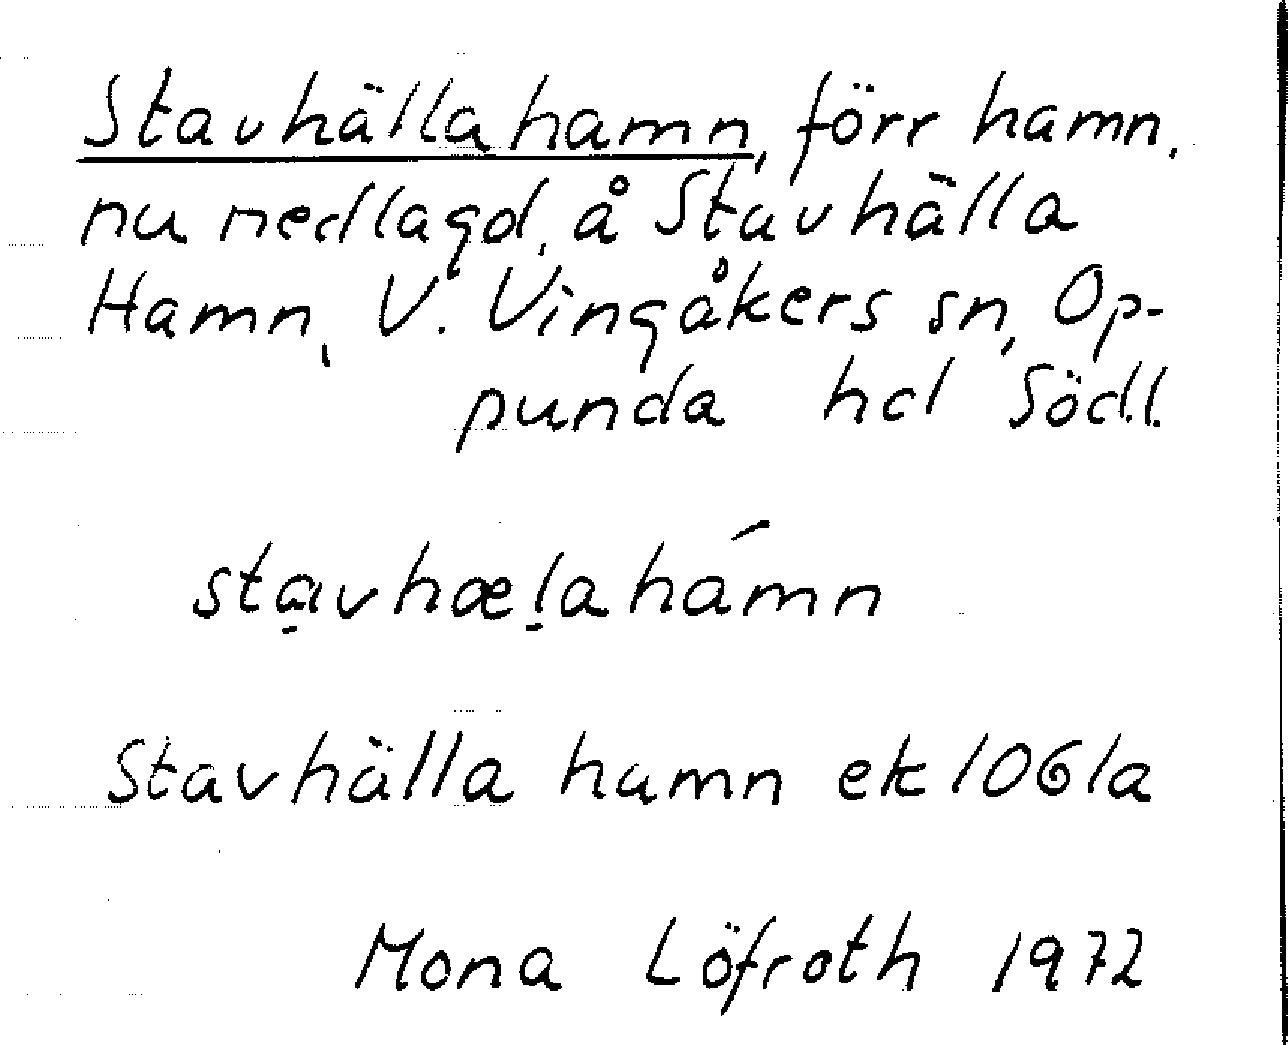 Stavhällahamn, förr hamn,
nu nedlagd, å Stavhälla
Hamn, V. Vingåkers sn, Op-
punda hd Södl.
sta̱vhæḻahámn
Stavhälla hamn ek 1061a
Mona Löfroth 1972